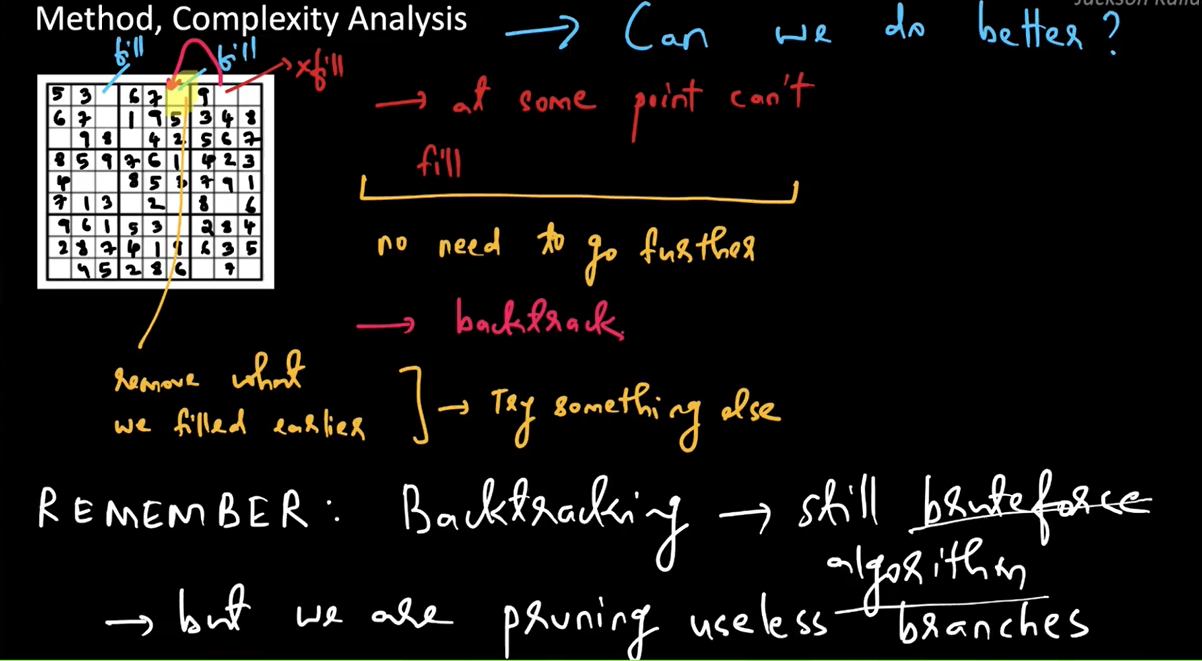 Method, Complexity Analysis → Can we do better?
fill fill xfill
5 3 6 7 9
6 7 1 9 5 3 4 8
9 8 4 2 5 6 7
8 5 9 7 6 1 4 2 3
4 8 5 3 7 9 1
7 1 3 2 8 6
9 6 1 5 3 2 8 4
2 8 7 4 1 9 6 3 5
4 5 2 8 6 7
→ at some point can't
fill
no need to go further
→ backtrack.
remove what
we filled earlier → Try something else
REMEMBER: Backtracking → still bruteforce
algorithm
→ but we are pruning useless branches